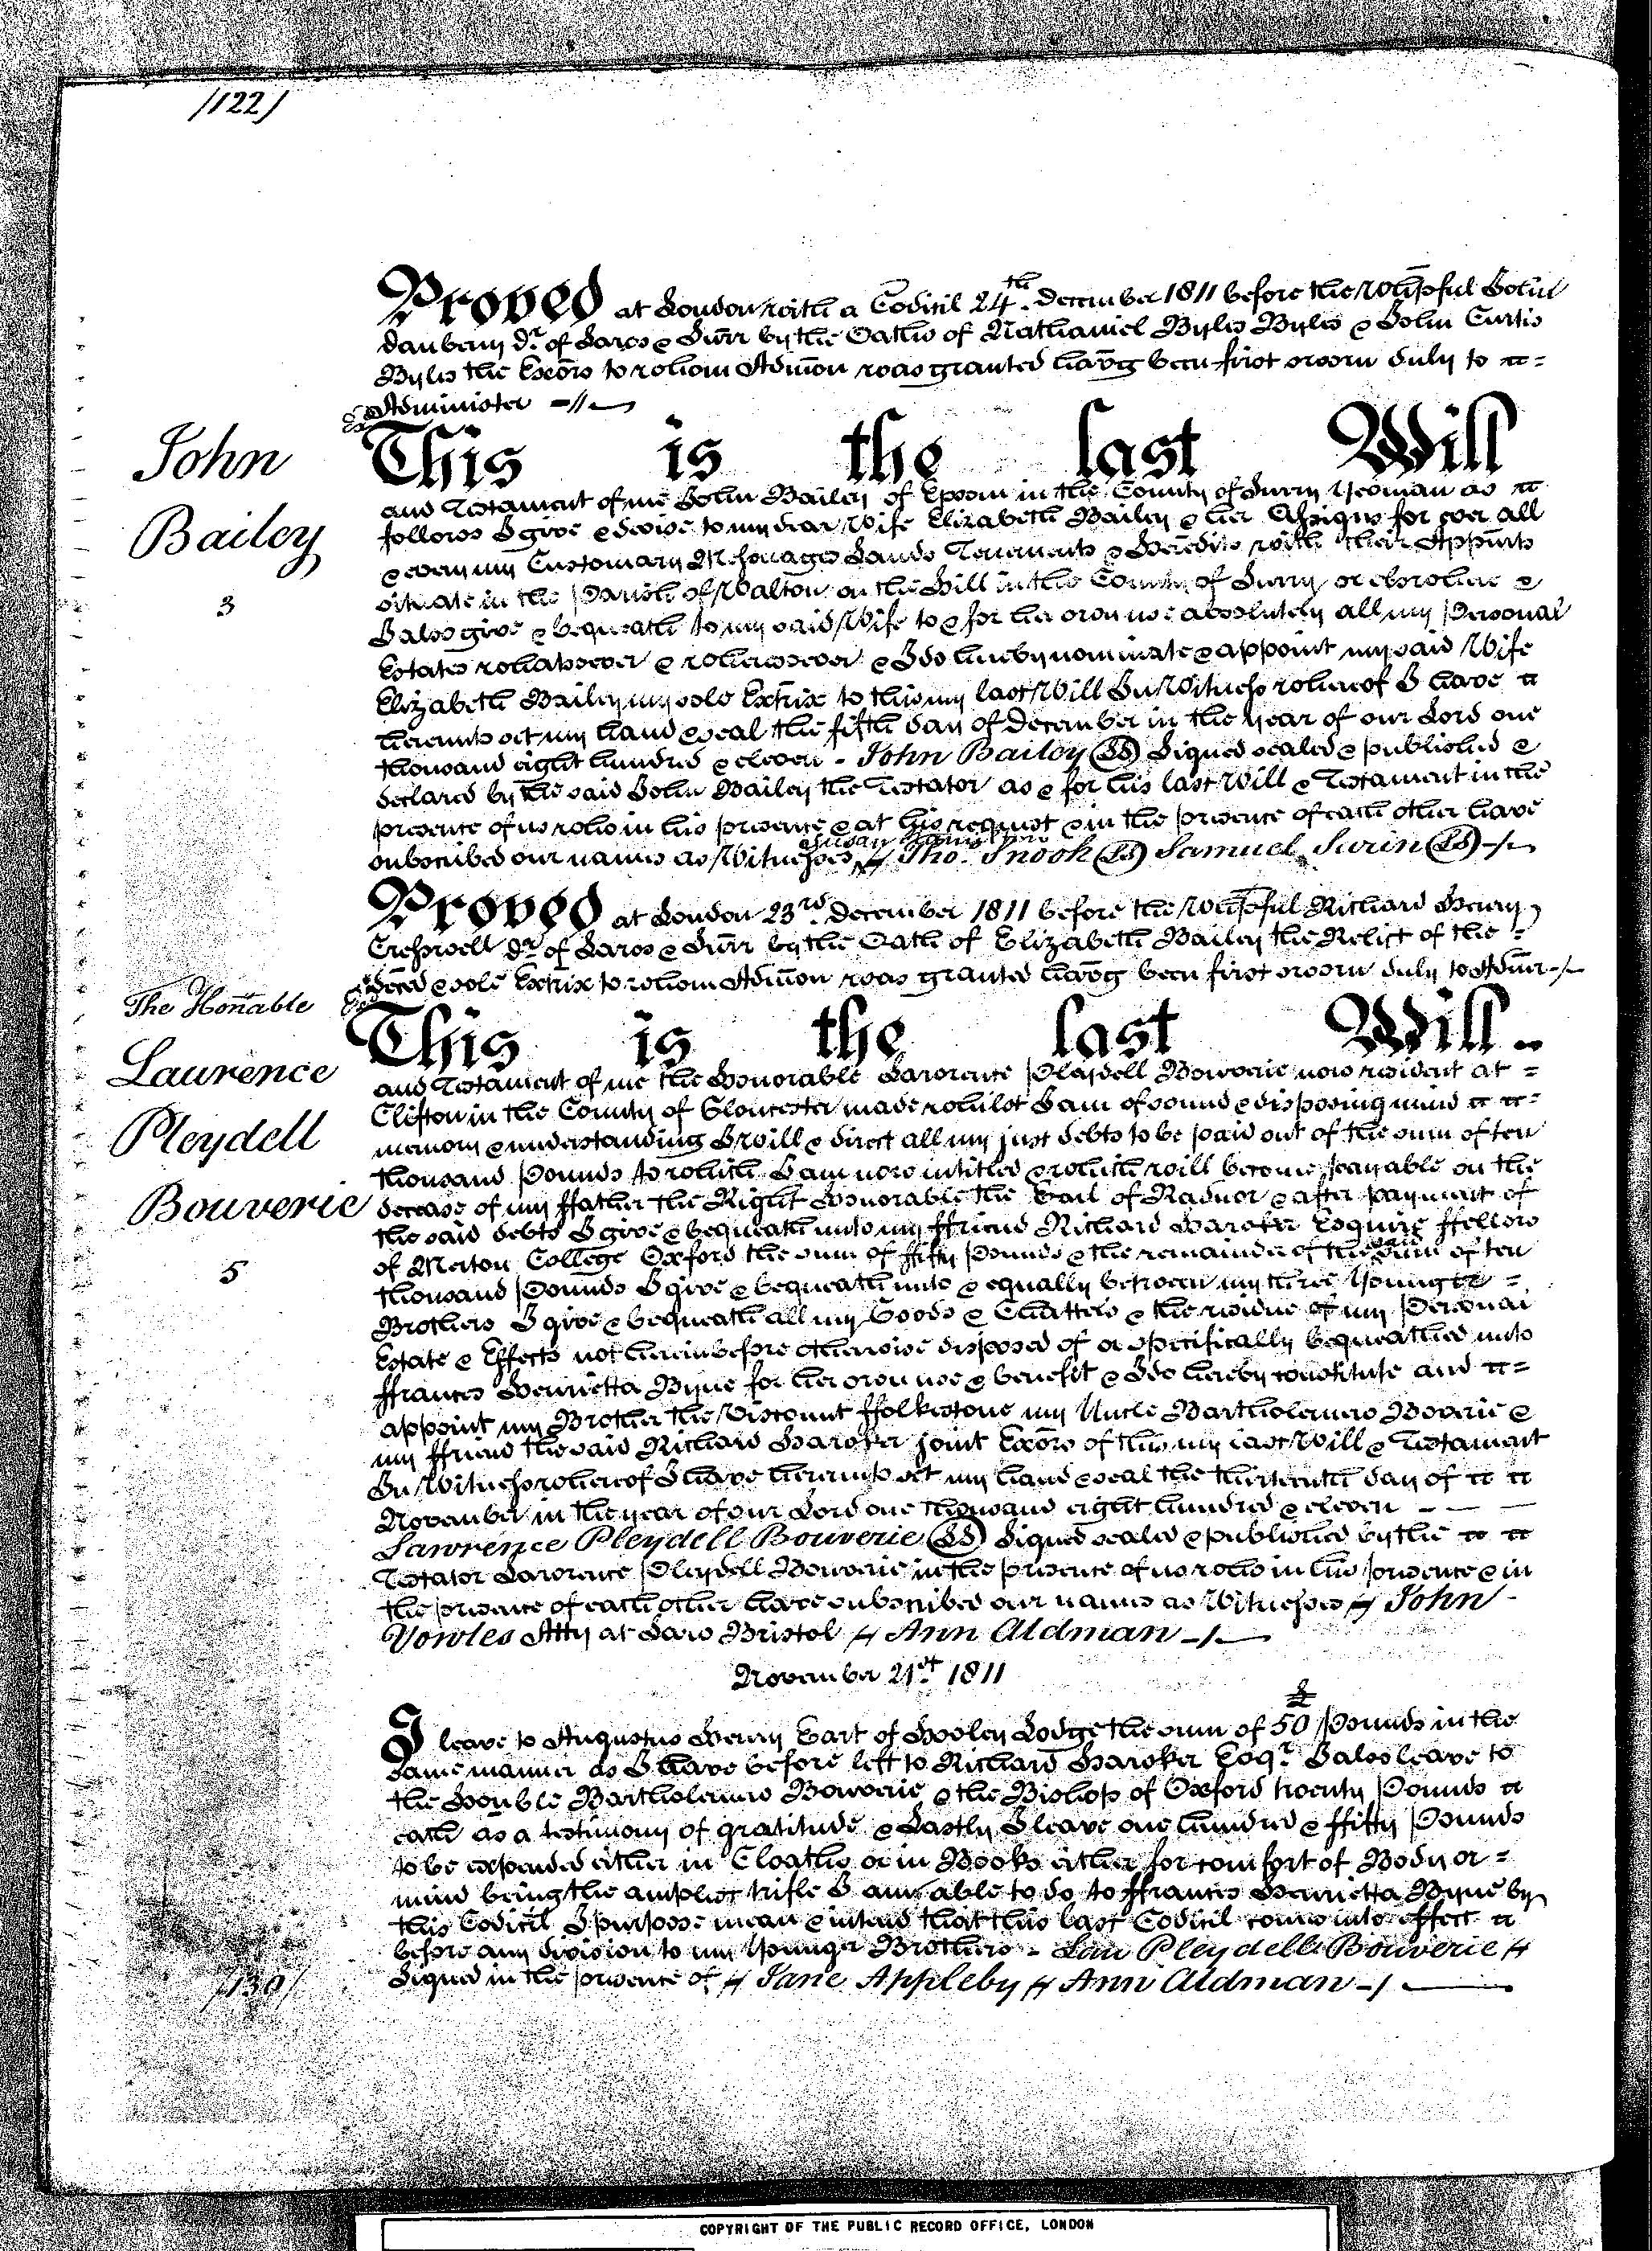 /122/
Proved at London with a Codicil 24th. December 1811 before the Worspful John
Daubeny Dr. of Laws & Surr by the Oaths of Nathaniel Byles Byles & John Curtis
Byles the Exors to whom Admon was granted havg been first sworn duly to
Administer
John
Bailey
3
This is the last Will
and Testament of me John Bailey of Epsom in the County of Surry Yeoman as
follows I give & devise to my dear Wife Elizabeth Bailey & her Assigns for ever all
& every my Customary Messuages Lands Tenements & Heredits with their Appurts
situate in the Parish of Walton on the Hill in the County of Surry or elsewhere &
I also give & bequeath to my said Wife to & for her own use absolutely all my Personal
Estates whatsoever & wheresoever & I do hereby nominate & appoint my said Wife
Elizabeth Bailey my sole Extrix to this my last Will In Witness whereof I have
hereunto set my hand & seal the fifth day of December in the year of our Lord one
thousand eight hundred & eleven - John Bailey (LS) Signed sealed & published &
declared by the said John Bailey the Testator as & for his last Will & Testament in the
presence of us who in his presence & at his request & in the presence of each other have
subscribed our names as Witnesses Susan Tho. Snook (LS) Samuel Surin (LS)
Proved at London 23rd. December 1811 before the Worspful Richard Henry
Cresswell Dr. of Laws & Surr by the Oath of Elizabeth Bailey the Relict of the
deced & sole Extrix to whom Admon was granted havg been first sworn duly to Admr
The Honable
Laurence
Pleydell
Bouverie
5
This is the last Will
and Testament of me the Honorable Lawrence Pleydell Bouverie now resident at
Clifton in the County of Gloucester made whilst I am of sound & disposing mind
memory & understanding I will & direct all my just debts to be paid out of the sum of ten
thousand Pounds to which I am now intitled & which will become payable on the
decease of my ffather the Right Honorable the Earl of Radnor & after payment of
the said debts I give & bequeath unto my ffriend Richard Hawker Esquire ffellow
of Merton College Oxford the sum of ffifty Pounds & the remainder of the said sum of ten
thousand Pounds I give & bequeath unto & equally between my three Younger
Brothers I give & bequeath all my Goods & Chattels & the residue of my Personal
Estate & Effects not hereinbefore otherwise disposed of or specifically bequeathed unto
ffrances Henrietta Byne for her own use & benefit & I do hereby constitute and
appoint my Brother the Viscount ffolkestone my Uncle Bartholemew Boverie &
my ffriend the said Richard Hawker joint Exors of this my last Will & Testament
In Witness whereof I have hereunto set my hand & seal the thirteenth day of
November in the year of our Lord one thousand eight hundred & eleven
Lawrence Pleydell Bouverie (LS) Signed sealed & published by the
Testator Lawrence Pleydell Bouverie in the presence of us who in his presence & in
the presence of each other have subscribed our names as Witnesses John
Vowles Atty at Law Bristol Ann Aldman
November 21st. 1811
I leave to Augustus Henry East of Hooley Lodge the sum of 50 Pounds in the
same manner as I have before left to Richard Hawker Esqr. I also leave to
the Honble Bartholemew Bouverie & the Bishop of Oxford twenty Pounds
each as a testimony of gratitude & Lastly I leave one hundred & ffifty Pounds
to be expended either in Cloaths or in Books either for comfort of Body or
mind being the amplest trifle I am able to do to ffrances Henrietta Byne by
this Codicil I purpose mean & intend that this last Codicil comes into effect
before any division to my Younger Brothers - Lau Pleydell Bouverie
Signed in the presence of Jane Appleby Ann Aldman
/130/
COPYRIGHT OF THE PUBLIC RECORD OFFICE, LONDON